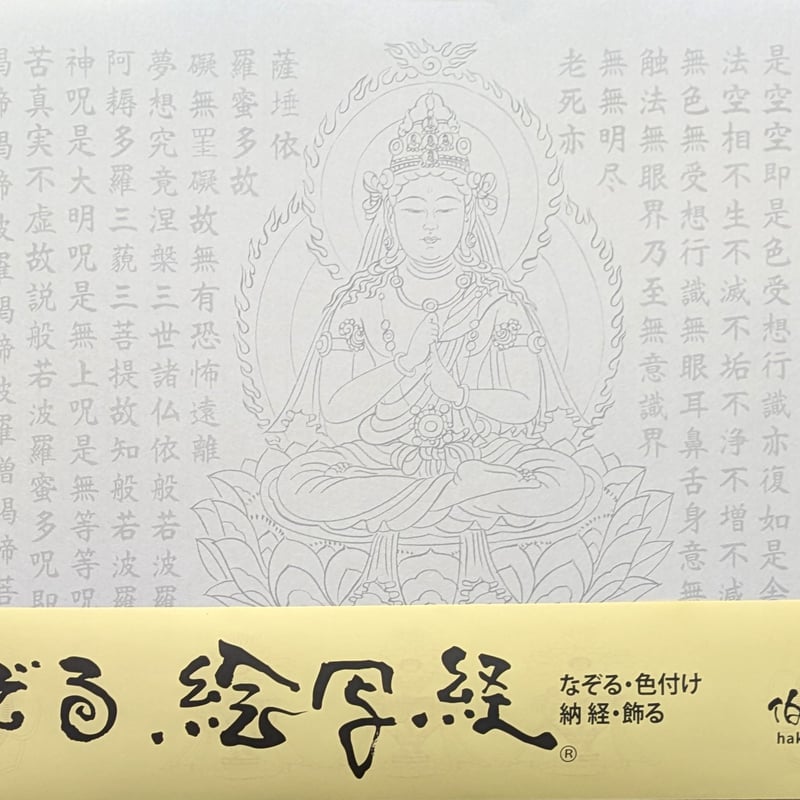 是空空即是色受想行識亦復如是舎
法空相不生不滅不垢不浄不増不減
無色無受想行識無眼耳鼻舌身意無
触法無眼界乃至無意識界
無無明尽
老死亦
薩埵依
羅蜜多故
礙無罣礙故無有恐怖遠離
夢想究竟涅槃三世諸仏依般若波羅
阿耨多羅三藐三菩提故知般若波羅
神呪是大明呪是無上呪是無等等呪
苦真実不虚故説般若波羅蜜多呪即
羯諦羯諦波羅羯諦波羅僧羯諦菩
ぞる・絵写経®
なぞる・色付け
納経・飾る
伯
hak